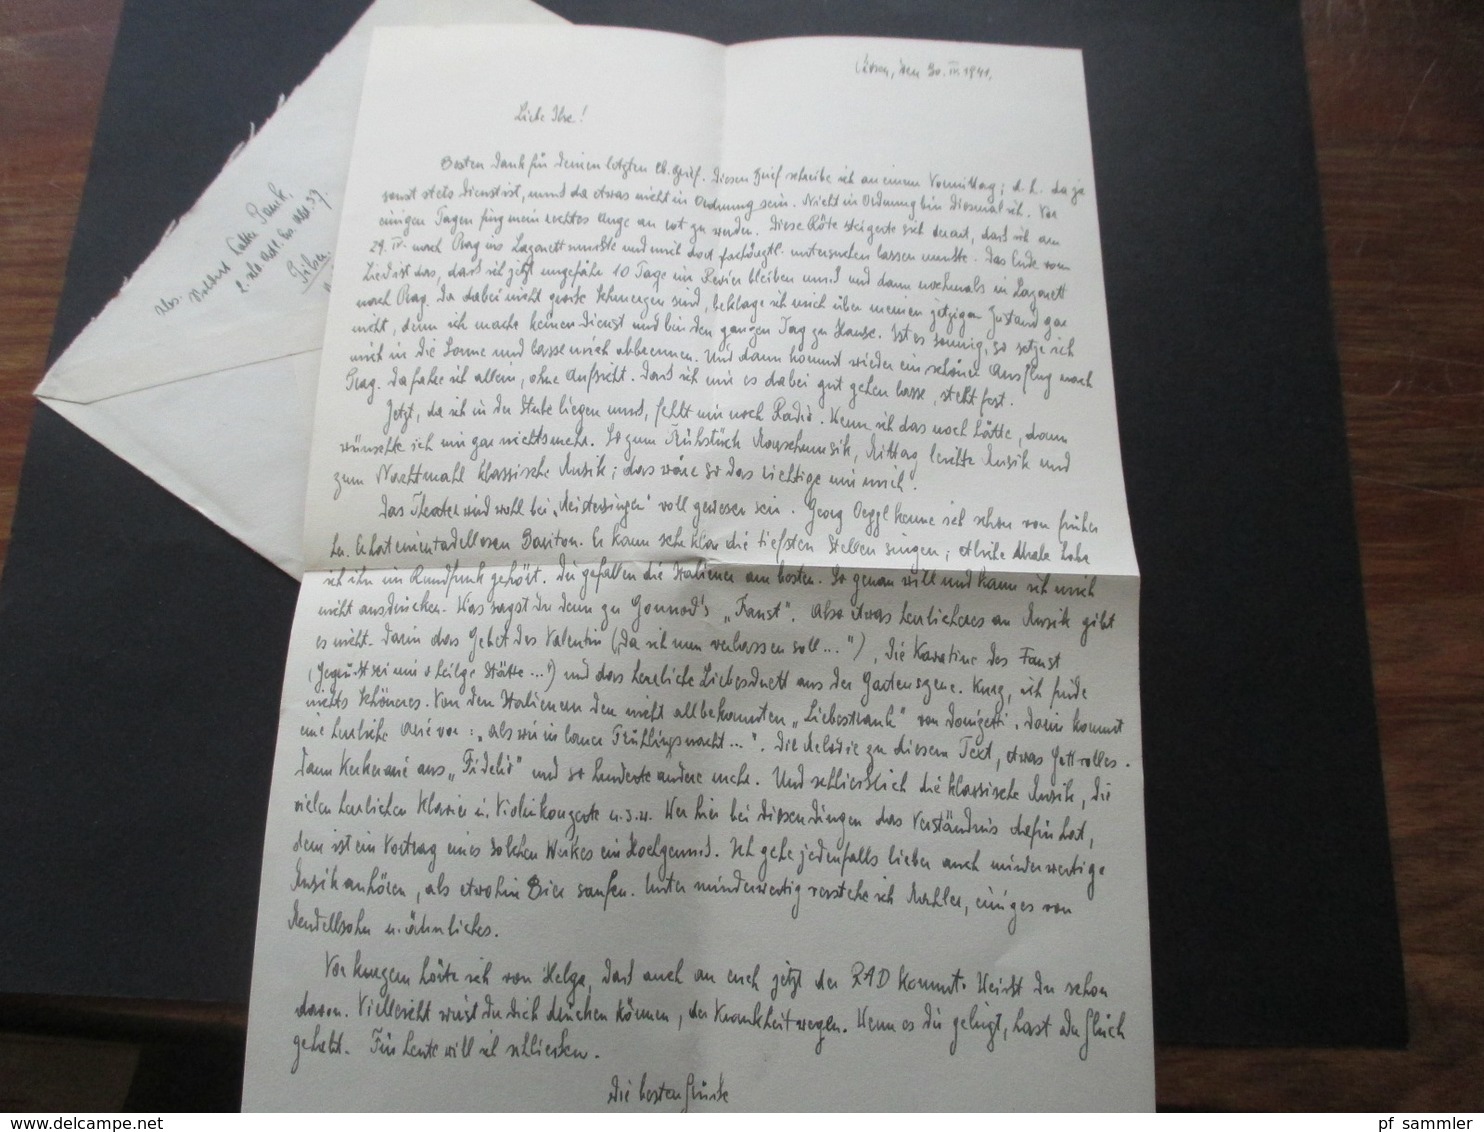 Pilsen, den 30. IV. 1941.
Liebe Ilse!
Besten Dank für Deinen letzten lb. Brief. Diesen Brief schreibe ich an einem Vormittag; d. h. da ja
sonst stets Dienst ist, muß da etwas nicht in Ordnung sein. Nicht in Ordnung bin diesmal ich. Vor
einigen Tagen fing mein rechtes Auge an rot zu werden. Diese Röte steigerte sich derart, daß ich am
29. IV. nach Prag ins Lazarett mußte und mich dort fachärztl. untersuchen lassen mußte. Das Ende vom
Lied ist das, daß ich jetzt ungefähr 10 Tage im Revier bleiben muß und dann nochmals in Lazarett
nach Prag. Da dabei nicht große Schmerzen sind, beklage ich mich über meinen jetzigen Zustand gar
nicht, denn ich mache keinen Dienst und bin den ganzen Tag zu Hause. Ist es sonnig, so setze ich
mich in die Sonne und lasse mich abbrennen. Und dann kommt wieder ein schöner Ausflug nach
Prag. Da fahre ich allein, ohne Aufsicht. Daß ich mir es dabei gut gehen lasse, steht fest.
Jetzt, da ich in der Stube liegen muß, fehlt mir noch Radio. Wenn ich das noch hätte, dann
wünschte ich mir gar nichts mehr. So zum Frühstück Marschmusik, Mittag leichte Musik und
zum Nachtmahl klassische Musik; das wäre so das richtige für mich.
Das Theater wird wohl bei „Meistersinger" voll gewesen sein. Georg Oeggl kenne ich schon von früher
her. Er hat einen tadellosen Bariton. Er kann sehr klar die tiefsten Stellen singen; etliche Male habe
ich ihn im Rundfunk gehört. Dir gefallen die Italiener am besten. So genau will und kann ich mich
nicht ausdrücken. Was sagst Du denn zu Gounod's „Faust". Also etwas herrlicheres an Musik gibt
es nicht. Darin das Gebet des Valentin („Da ich nun verlassen soll..."), die Kavatine des Faust
(„Gegrüßt sei mir o heilge Stätte...") und das herrliche Liebesduett aus der Gartenszene. Kurz, ich finde
nichts Schöneres. Von den Italienern den nicht allbekannten „Liebestrank" von Donizetti. Darin kommt
eine herrliche Arie vor: „Als wir in lauer Frühlingsnacht...". Die Melodie zu diesem Text, etwas Gottvolles.
Dann Kerkerarie aus „Fidelio" und so hunderte andere mehr. Und schließlich die klassische Musik, die
vielen herrlichen Klavier u. Violinkonzerte u.s.w. Wer hier bei diesen Dingen das Verständnis dafür hat,
dem ist ein Vortrag eines solchen Werkes ein Hochgenuß. Ich gehe jedenfalls lieber auch minderwertige
Musik anhören, als etwohin Bier saufen. Unter minderwertig verstehe ich Mahler, einiges von
Mendellsohn u. ähnliches.
Vor kurzem hörte ich von Helga, daß auch an euch jetzt der RAD kommt. Weißt Du schon
davon. Vielleicht wirst Du dich drücken können, der Krankheit wegen. Wenn es dir gelingt, hast Du Glück
gehabt. Für heute will ich schließen.
Die besten Grüße
Abs.
Pilsen
pf sammler